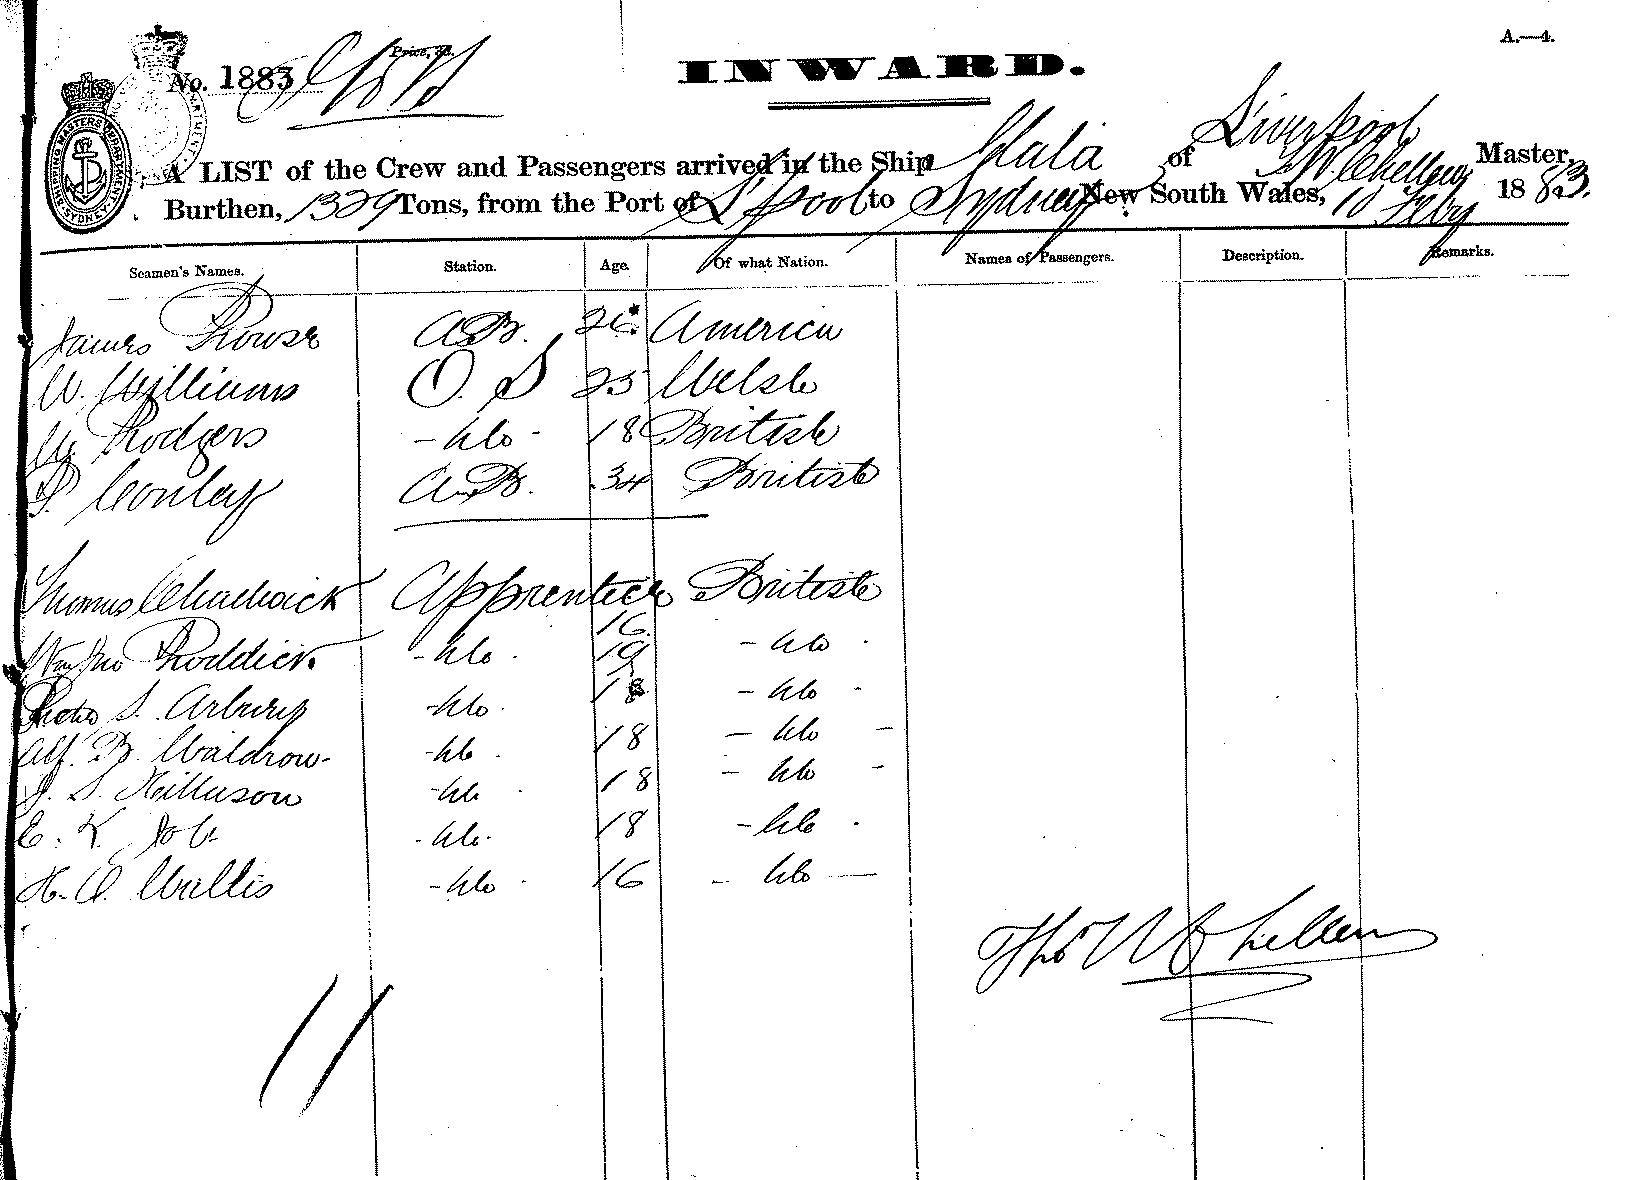 A.—4.
Price, 3d.
No. 1883
INWARD.
A LIST of the Crew and Passengers arrived in the Ship of Liverpool Master,
Burthen, 1329 Tons, from the Port of L'pool to Sydney New South Wales, 10 Feby 1883.
Seamen's Names. Station. Age. Of what Nation. Names of Passengers. Description. Remarks.
James Rowse A.B. America
W. Williams O.S 25 Welsh
Rodgers - do - 18 British
Conley A.B. 34 British
Thomas Chadwick Apprentice British
16
Roddick - do - 19 - do -
S. Arbury - do - 18 - do -
Alf. B. Waldron - do - 18 - do -
J. S. - do - 18 - do -
E. K. - do - 18 - do -
H. O. Wallis - do - 16 - do -
Thos W Chellew
11
SHIPPING MASTER'S DEPARTMENT SYDNEY